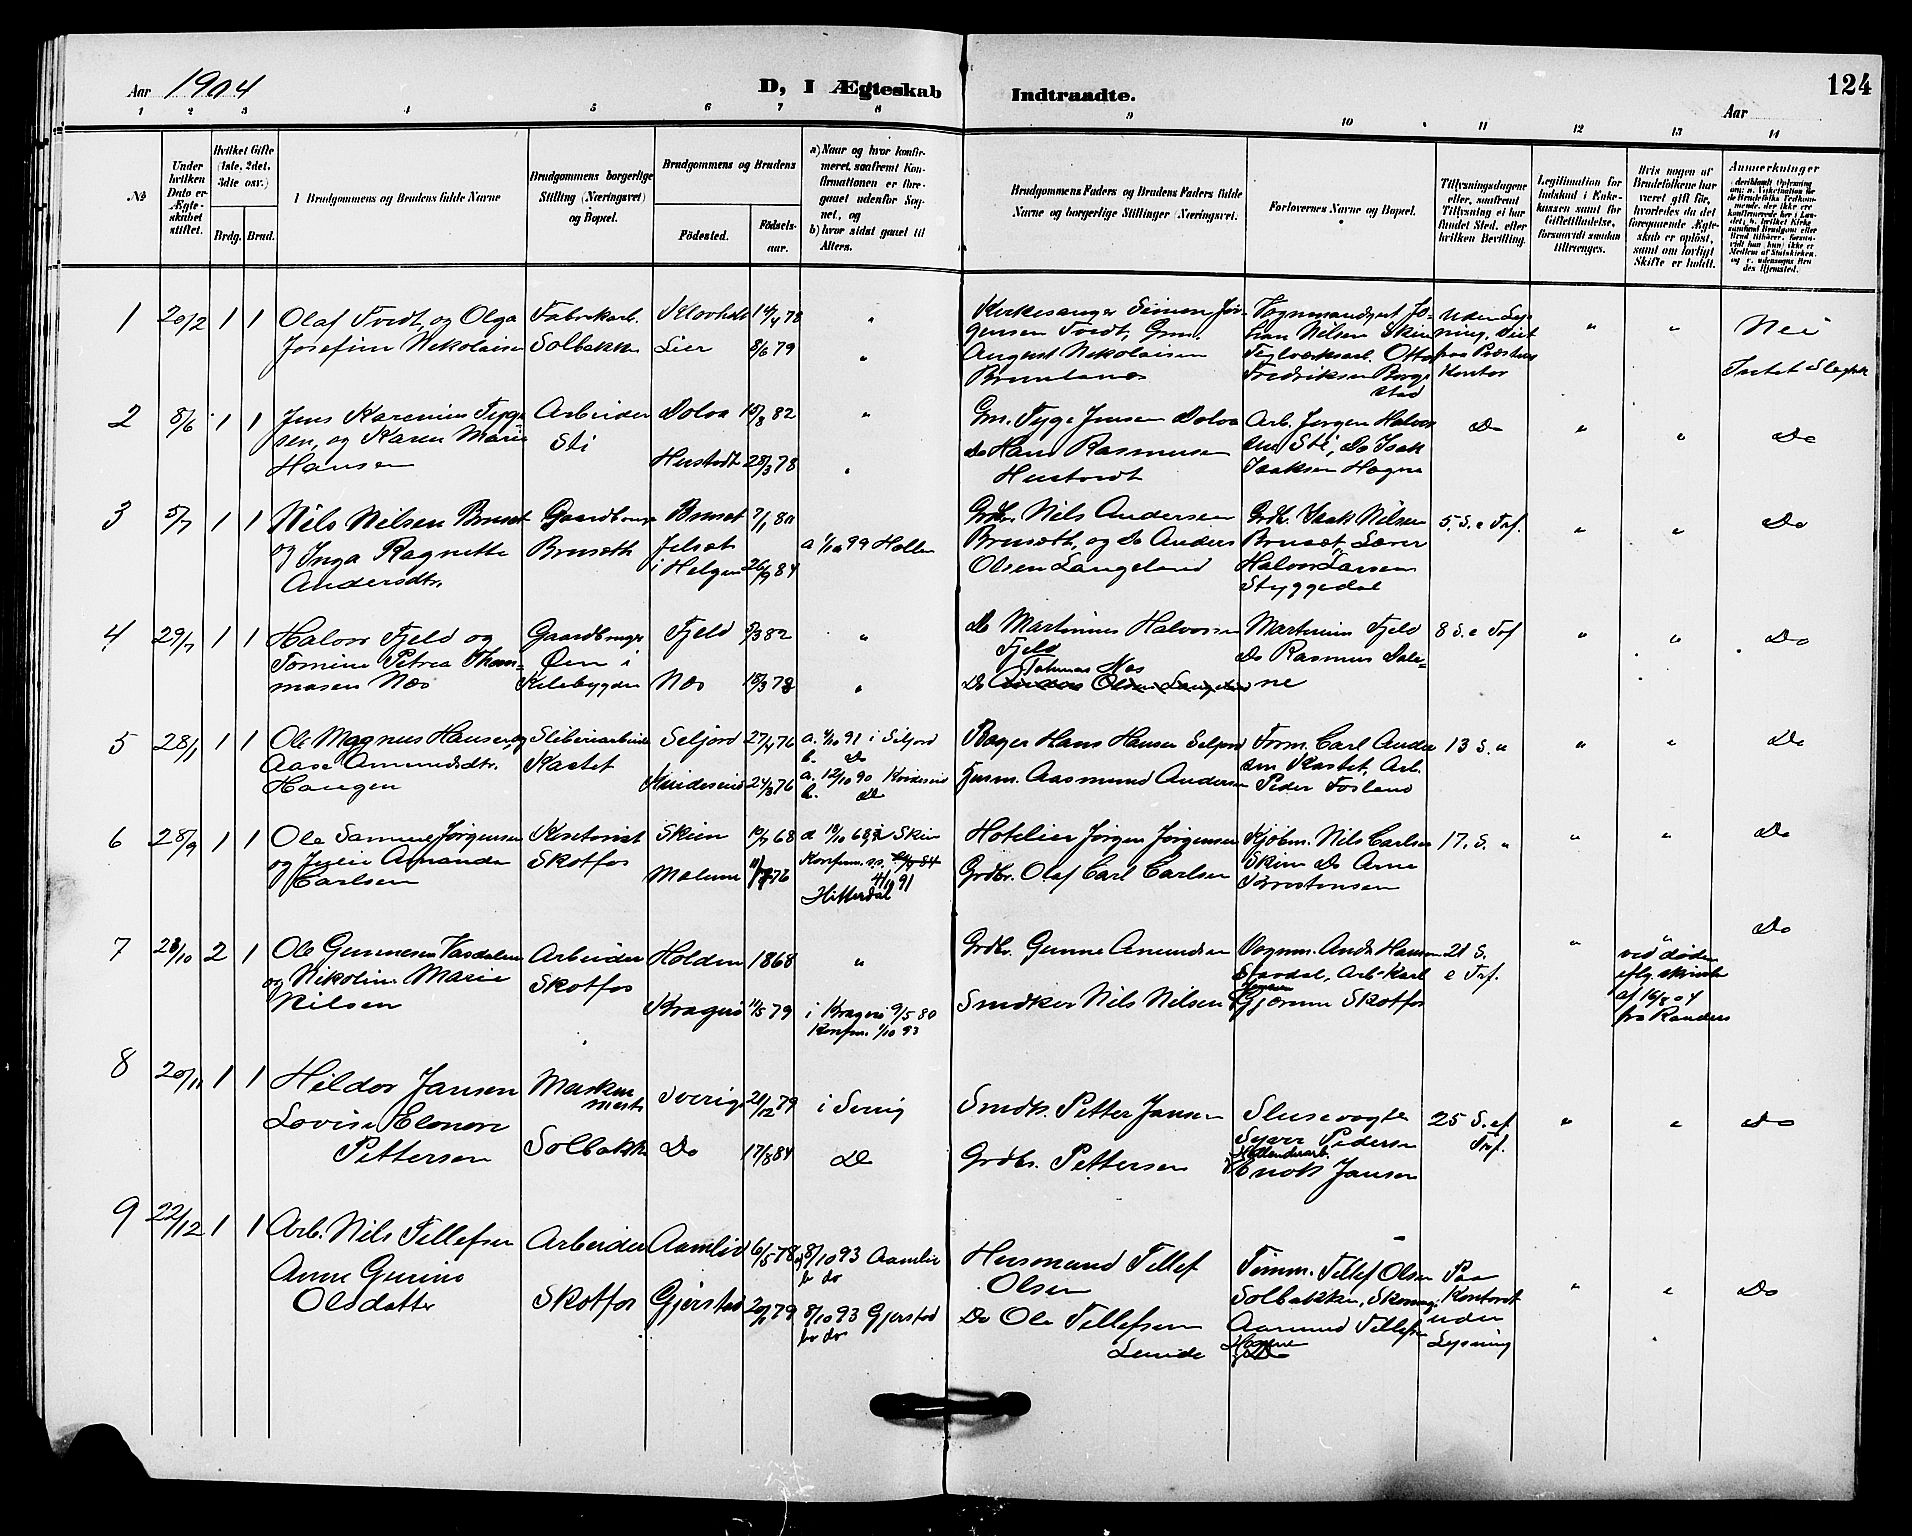 Aar 1904
D, I Ægteskab Indtraadte.
124
Aar
1 2 3 4 5 6 7 8 9 10 11 12 13 14
№
Under hvilken Dato er Ægteskabet stiftet.
Hvilket Gifte (1ste, 2det, 3die osv.)
Brdg. Brud.
Brudgommens og Brudens fulde Navne
Brudgommens borgerlige Stilling (Næringsvei) og Bopæl.
Brudgommens og Brudens
Födested.
Födselsaar.
a) Naar og hvor konfirmeret, saafremt Konfirmationen er foregaaet udenfor Sognet, og
b) hvor sidst gaaet til Alters.
Brudgommens Faders og Brudens Faders fulde Navne og borgerlige Stillinger (Næringsvei).
Forlovernes Navne og Bopæl.
Tillysningsdagene eller, saafremt Tillysning ei har fundet Sted, efter hvilken Bevilling.
Legitimation for Indskud i Enkekassen samt for Giftetilladelse, forsaavidt saadan tiltrænges.
Hvis nogen af Brudefolkene har været gift för, hvorledes da det foregaaende Ægteskab er oplöst, samt om lovligt Skifte er holdt.
Anmærkninger
1 20/12 1 1 Olaf Tvedt, og Olga
Josefine Nikolaisen
Fabrikarb.
Solbakken
Klovholt 14/4 78
Lier 8/6 79
Kirkesanger Simon Jörgensen Tvedt, Gm.
August Nikolaisen
Vognmand Johan Nilsen Skien
Teglværksarb. Otto
Fredriksen Borgestad
Uden Lysning, Viet paa Præstens Kontor
" " Nei
Intet Slægtsk
2 8/6 1 1 Jens Karenius Tygesen, og Karen Marie
Hansen
Arbeider
Sti
Dolva 15/8 82
Hustvedt 28/3 78
Gm. Tyge Jensen Dolva
Do Hans Rasmussen
Arb. Jorgen Halvorsen Sti, Do Isak
Isaksen Hogne
Do " " Do
3 5/7 1 1 Nils Nilsen Bruset
og Inga Ragnette
Andersdtr.
Gaardbruger
Bruseth
Bruset 7/1 80
i Helgen 26/9 84
a 1/10 99 Hollen
Grdbr. Nils Andersen
Bruseth, og Do Anders
Olsen Langeland
Grdb. Isak Nilsen
Bruset, Lærer
Halvor Larsen
Styggedal
5. S. e Tref. " " Do
4 29/7 1 1 Halvor Fjeld og
Tomine Petrea Thommasen Næs
Gaardbruger
Øen i
Kilebygden
Fjeld 5/3 82
Næs 18/3 78
Do Martinius Halvorsen
Fjeld
Martinius Fjeld
Do Rasmus Dalene
8 S. e Tref " " Do
5 28/1 1 1 Ole Magnus Hansen, og
Aase Amundsdtr.
Haugen
Sliberiarbeider
Kastet
Seljord 27/4 76
Kviteseid 24/3 76
a. 4/10 91 i Seljord
b. Do
a. 12/10 90 Kviteseid
b. Do
Bager Hans Hansen Seljord
Husm. Aasmund Andersen
Form. Carl Andersen Kastet, Arb.
Peder Fosland
13 S. " " " Do
6 28/9 1 1 Ole Samuel Jørgensen
og Julie Amanda
Carlsen
Skotfos
Skien 10/7 68
Konfirm.
4/10 91
Hitterdal
Hotelier Jørgen Jørgensen
Grdbr. Olaf Carl Carlsen
Kjöbm. Nils Carlsen
Skien Do Arne
Torrestensen
17. S. " " " Do
7 28/10 2 1 Ole Gunnesen Vasdalen
og Nikoline Marie
Nilsen
Arbeider
Skotfos
Holden 1868
Kragerö 11/5 79
i Kragerö 9/5 80
Konfirm. 1/10 93
Grdbr. Gunne Amundsen
Smdker Nils Nilsen
Vognm. Andr. Hansen
Arb. Karl
Gjerme Skotfos
21 S.
e Tref.
ved döden
eflg. skifte
af 16/8 04
fra Randers
Do
8 20/11 1 1 Hildor Jansen
Lovise Elonore
Pettersen
Maskinmest.
Solbakken
Sverige 21/12 79
Do 17/8 84
i Sverig
Do
Smdk. Petter Jansen
Grdbr. Pettersen
Slusevogte
Syver Pedersen
Enok Jansen
25 S. ef
Tref.
" " Do
9 22/12 1 1 Arb. Nils Tellefsen
Anne Gurine
Olsdatter
Arbeider
Skotfos
Aamlid 6/5 78
Gjerstad 20/1 79
a) 8/10 93 Aamlid
b do
8/10 93 Gjerstad
b do
Husmand Tellef
Olsen
Do Ole Tellefsen
Lunde
Tömm. Tellef Olsen
Solbakken, Skomag.
Aanund Tellefsen
Paa
Kontoret
uden
Lysning
" " Do